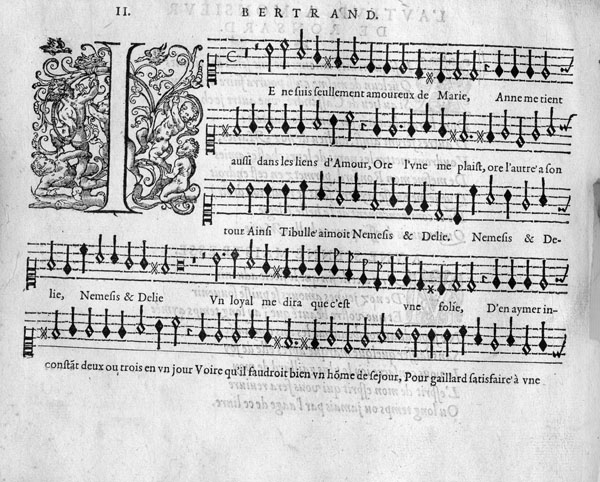 II. BERTRAND.
I
E ne suis seullement amoureux de Marie, Anne me tient
aussi dans les liens d'Amour, Ore l'vne me plaist, ore l'autre à son
tour Ainsi Tibulle aimoit Nemesis & Delie, Nemesis & De-
lie, Nemesis & Delie Vn loyal me dira que c'est vne folie, D'en aymer in-
constãt deux ou trois en vn jour Voire qu'il faudroit bien vn hõme de sejour, Pour gaillard satisfaire à vne